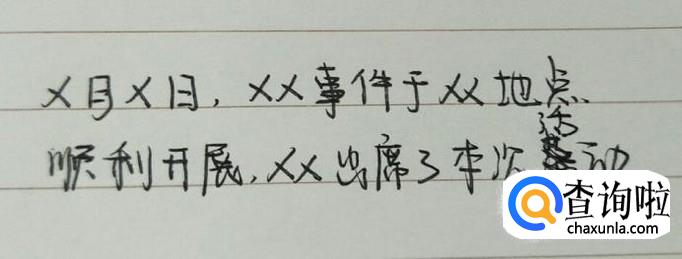 X月X日，XX事件于XX地点
顺利开展，XX出席了本次活动
查询啦
chaxunla.com